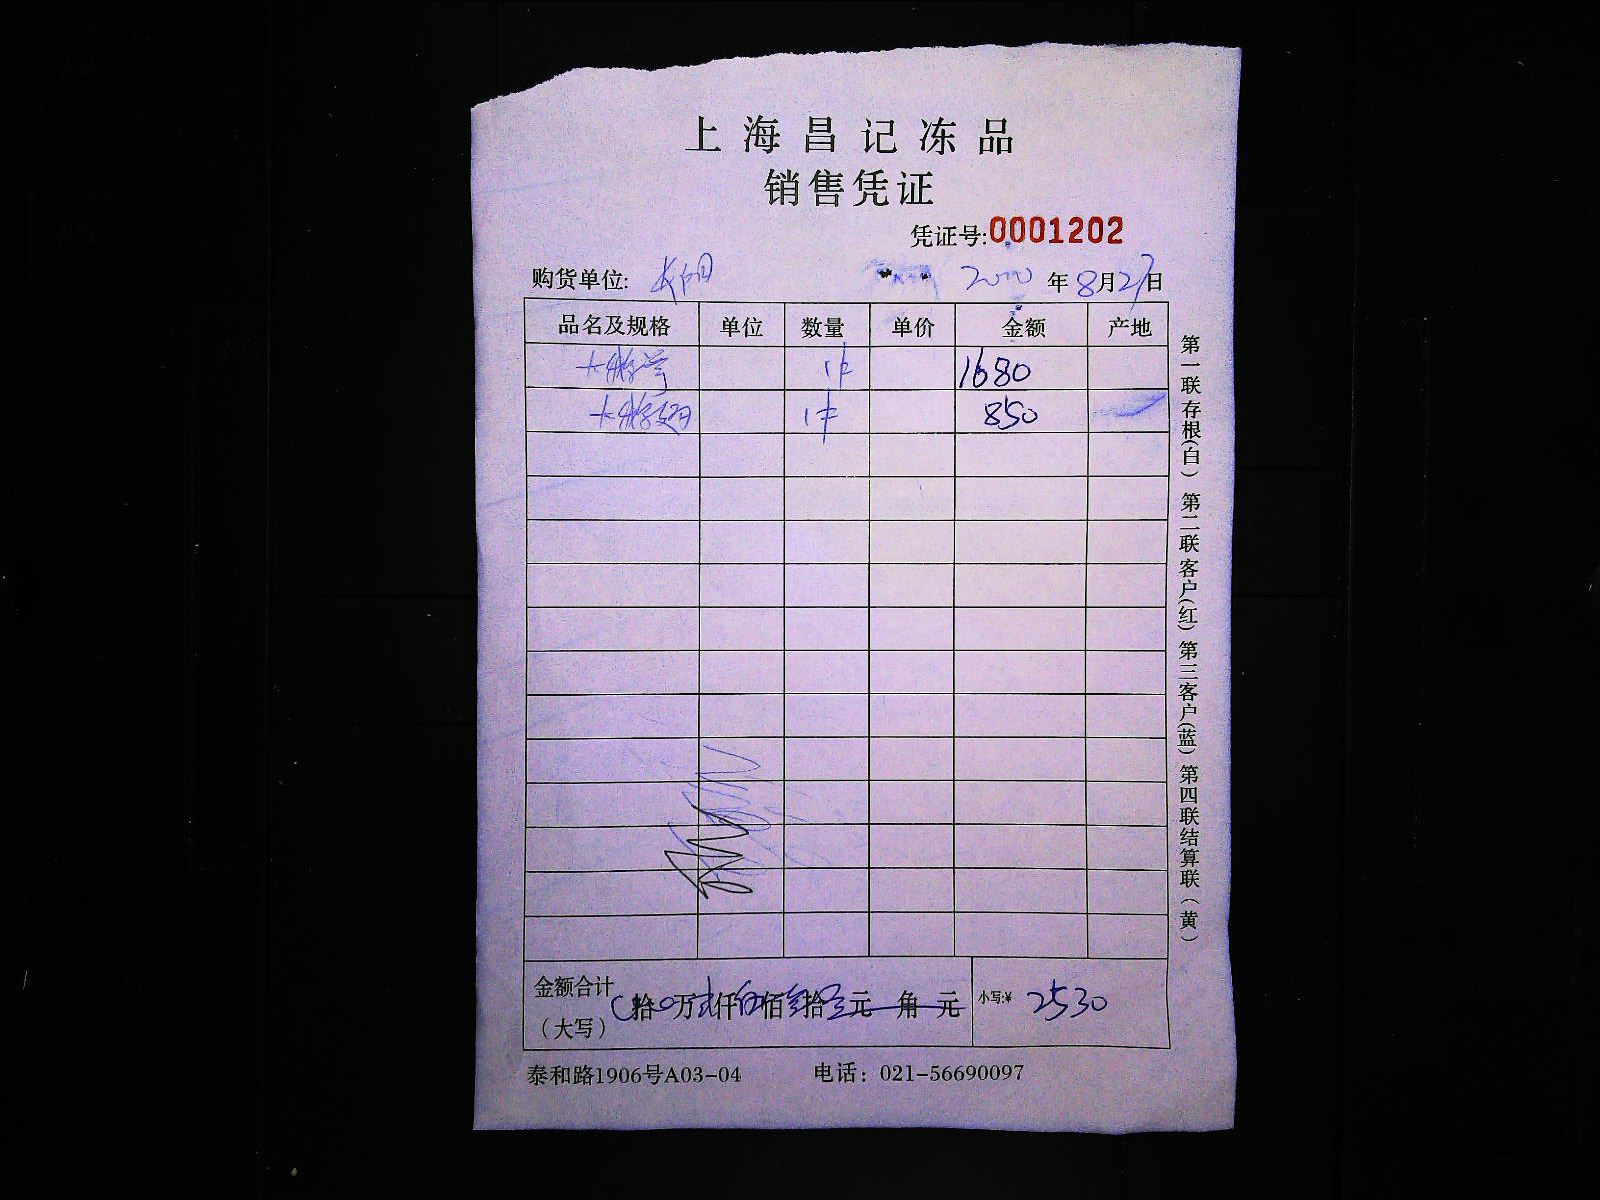 上海昌记冻品
销售凭证
凭证号:0001202
购货单位: 年8月27日
品名及规格 单位 数量 单价 金额 产地
1件 1680
1件 850
金额合计
（大写） 拾0万贰仟伍佰叁拾元 角 元 小写:¥ 2530
泰和路1906号A03-04 电话：021-56690097
第一联存根(白) 第二联客户(红) 第三客户(蓝) 第四联结算联(黄)